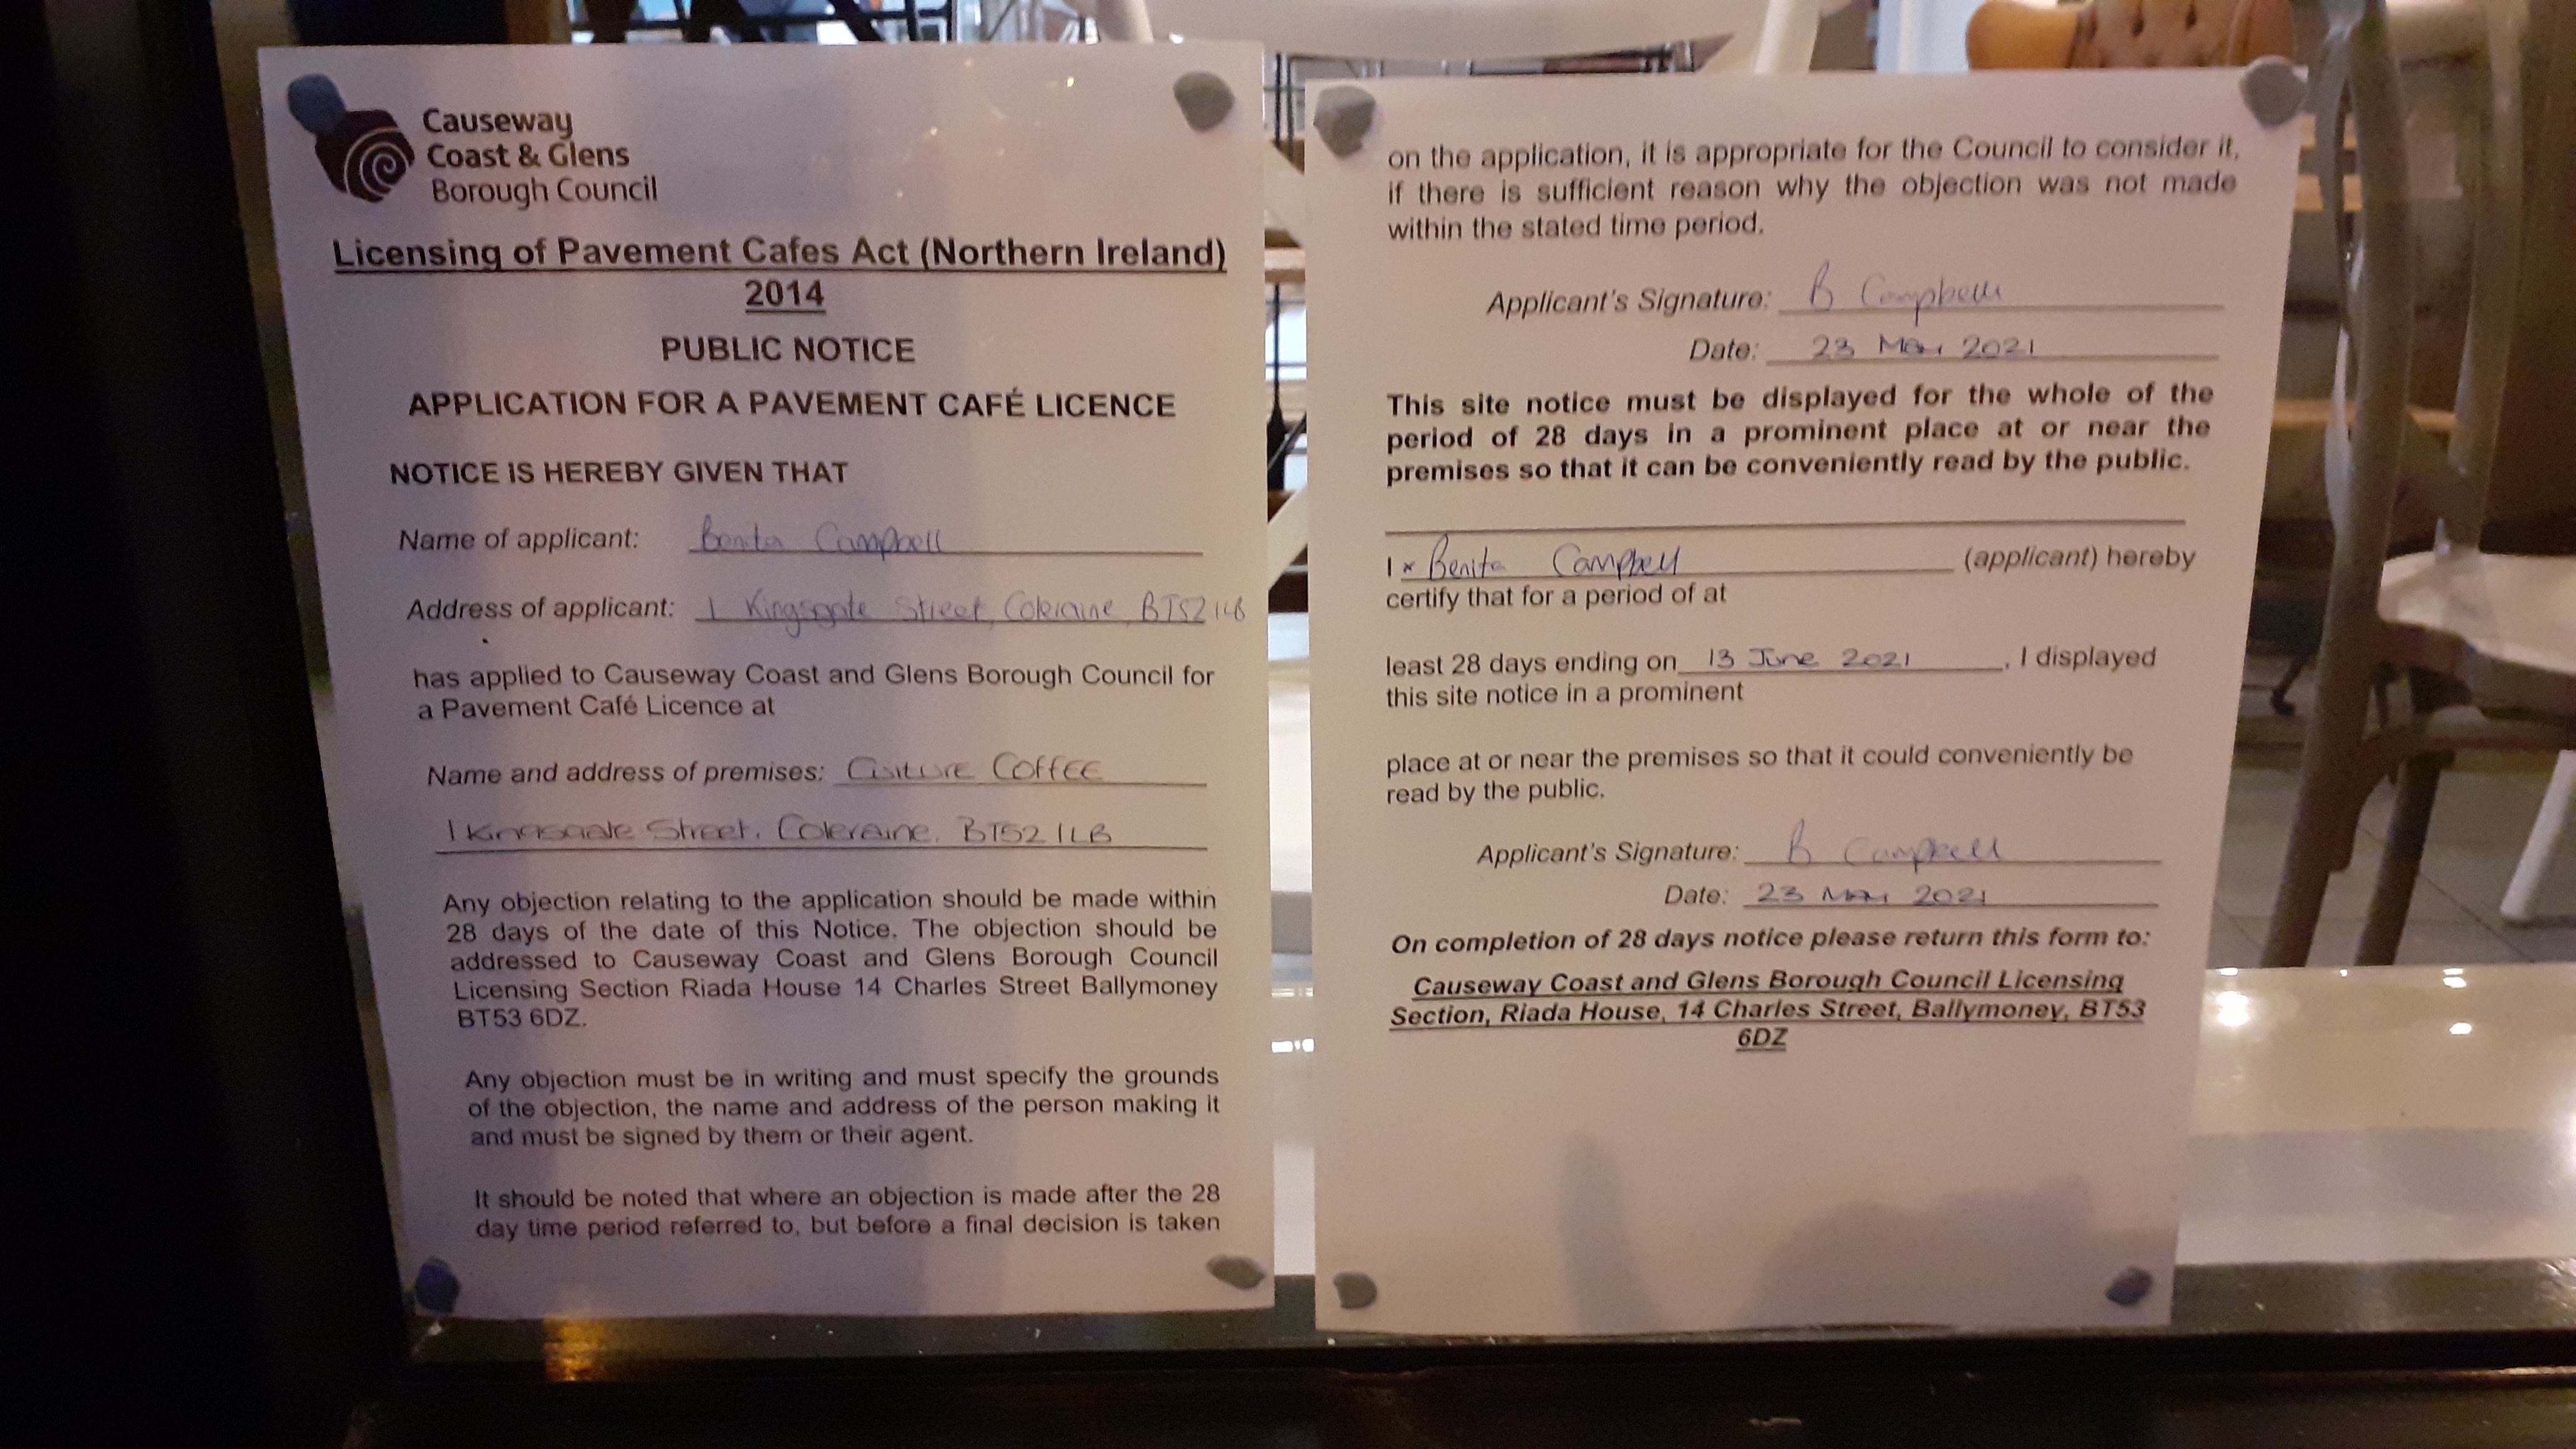 Causeway
Coast & Glens
Borough Council
Licensing of Pavement Cafes Act (Northern Ireland)
2014
PUBLIC NOTICE
APPLICATION FOR A PAVEMENT CAFÉ LICENCE
NOTICE IS HEREBY GIVEN THAT
Name of applicant: Benita Campbell
Address of applicant: 1 Kingsgate Street, Coleraine, BT52 1LB
has applied to Causeway Coast and Glens Borough Council for
a Pavement Café Licence at
Name and address of premises: Culture Coffee
1 Kingsgate Street, Coleraine, BT52 1LB
Any objection relating to the application should be made within
28 days of the date of this Notice. The objection should be
addressed to Causeway Coast and Glens Borough Council
Licensing Section Riada House 14 Charles Street Ballymoney
BT53 6DZ.
Any objection must be in writing and must specify the grounds
of the objection, the name and address of the person making it
and must be signed by them or their agent.
It should be noted that where an objection is made after the 28
day time period referred to, but before a final decision is taken
on the application, it is appropriate for the Council to consider it,
if there is sufficient reason why the objection was not made
within the stated time period.
Applicant's Signature: B Campbell
Date: 23 May 2021
This site notice must be displayed for the whole of the
period of 28 days in a prominent place at or near the
premises so that it can be conveniently read by the public.
I x Benita Campbell (applicant) hereby
certify that for a period of at
least 28 days ending on 13 June 2021, I displayed
this site notice in a prominent
place at or near the premises so that it could conveniently be
read by the public.
Applicant's Signature: B Campbell
Date: 23 May 2021
On completion of 28 days notice please return this form to:
Causeway Coast and Glens Borough Council Licensing
Section, Riada House, 14 Charles Street, Ballymoney, BT53
6DZ